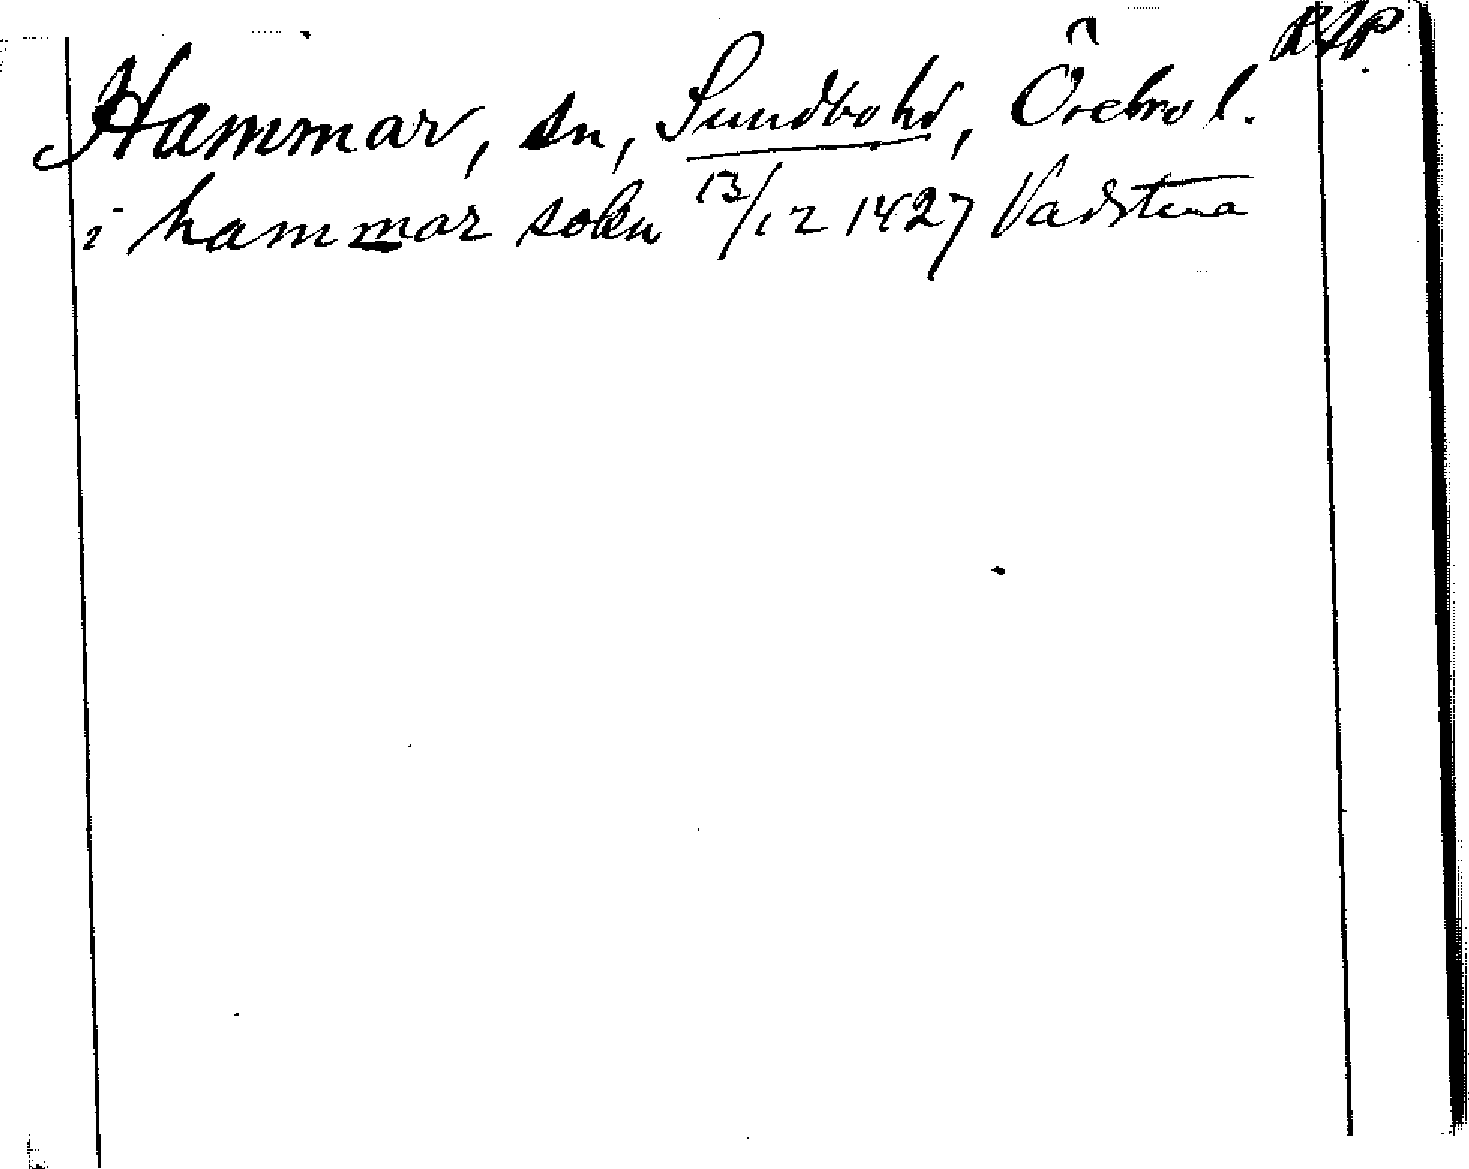 RAP
Hammar, sn, Sundbohd, Örebro l.
i hammar sokn 13/12 1427 Vadstena